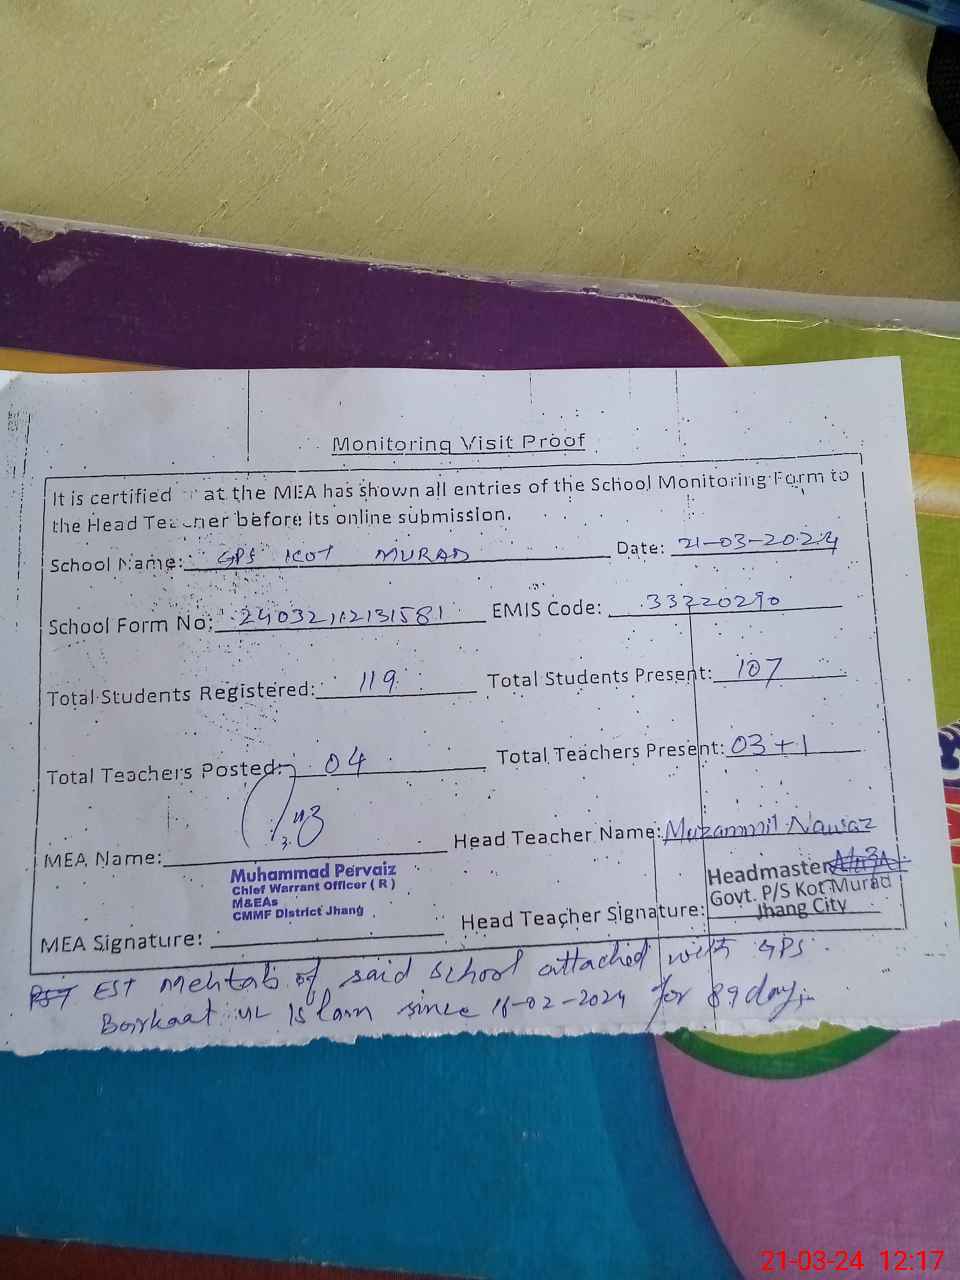 Monitoring Visit Proof
It is certified at the MEA has shown all entries of the School Monitoring Form to
the Head Teacher before its online submission.
School Name: GPS KOT MURAD Date: 21-03-2024
School Form No: 24032112131581 EMIS Code: 33220290
Total Students Registered: 119 Total Students Present: 107
Total Teachers Posted: 04 Total Teachers Present: 03+1
MEA Name: Head Teacher Name: Muzammil Nawaz
Muhammad Pervaiz
Chief Warrant Officer ( R )
M&EAs
CMMF District Jhang
Headmaster
Govt. P/S Kot Murad
Jhang City
MEA Signature: Head Teacher Signature:
EST Mehtab of said school attached with GPS
Barkaat ul Islam since 16-02-2024 for 89 days
21-03-24 12:17